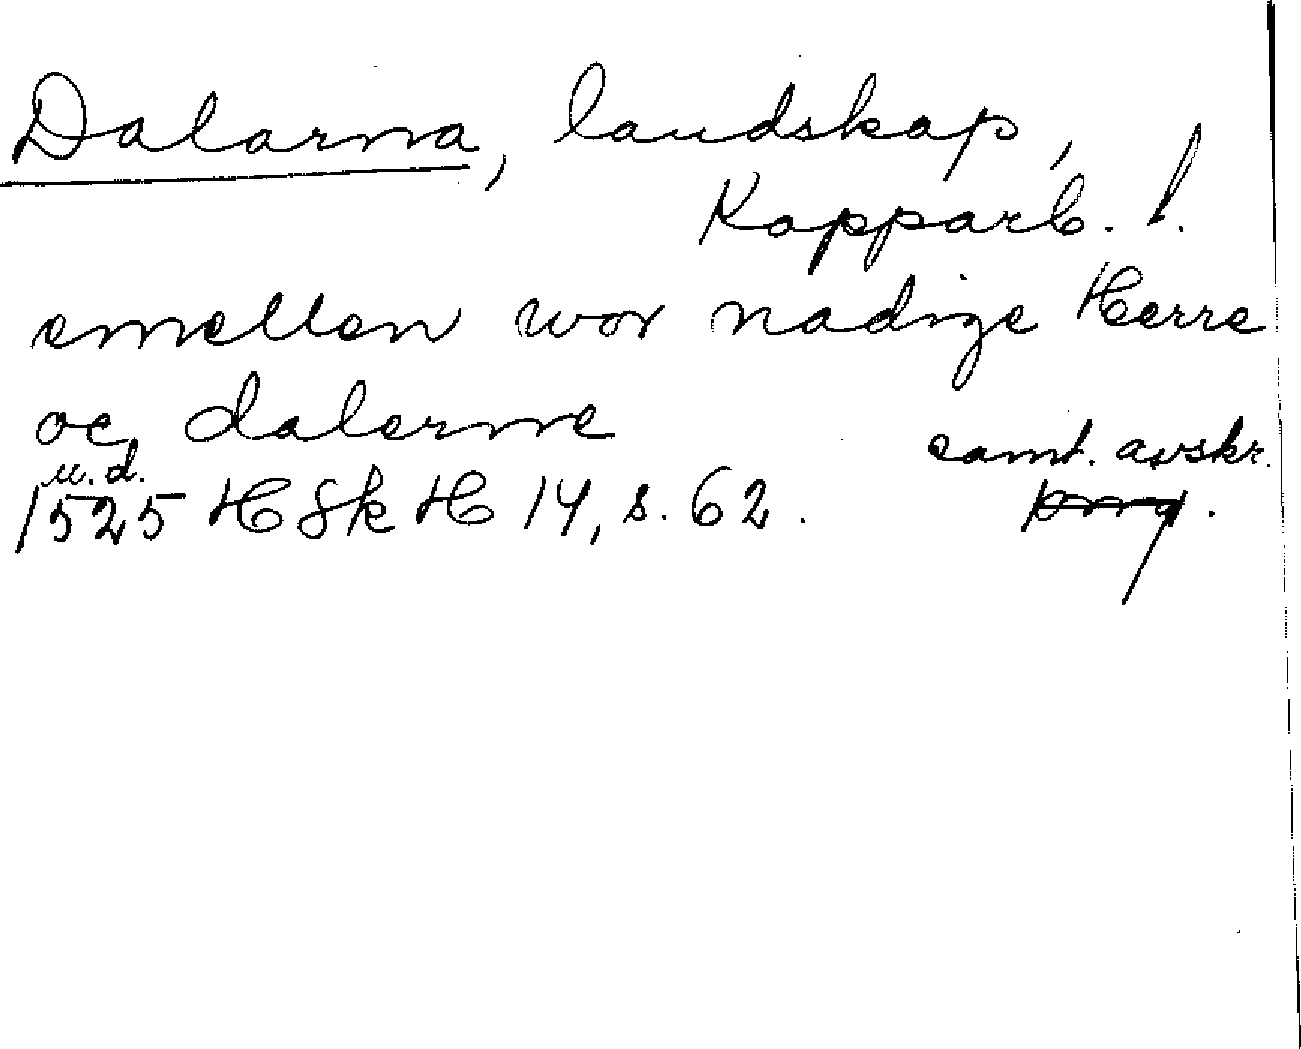 Dalarna, landskap,
Kopparb. l.
emellen wor nadige Herre
oc dalerne
u.d. samt. avskr.
1525 HSkH 14, s. 62.